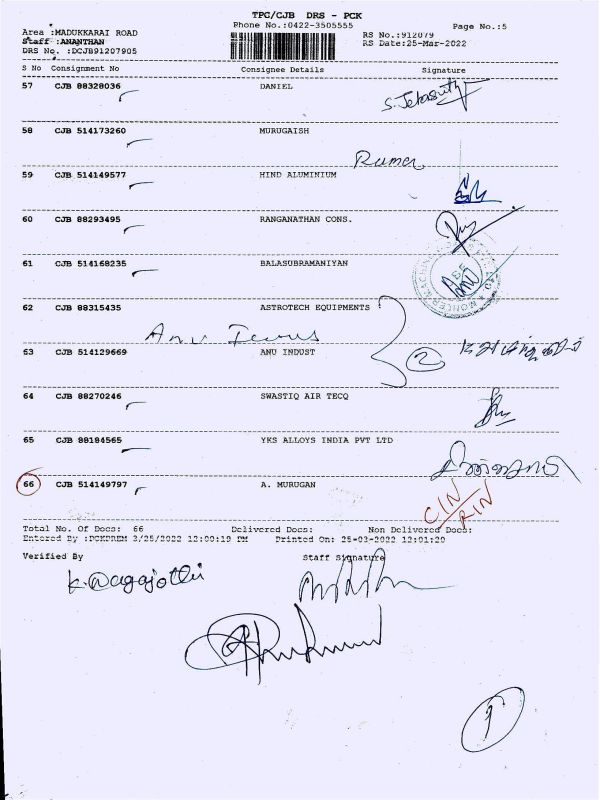 TPC/CJB DRS - PCK
Phone No.:0422-3505555
Page No.:5
Area :MADUKKARAI ROAD
RS No.:912079
Staff :ANANTHAN
RS Date:25-Mar-2022
DRS No. :DCJB91207905
S No Consignment No Consignee Details Signature
57 CJB 88328036 DANIEL
58 CJB 514173260 MURUGAISH
59 CJB 514149577 HIND ALUMINIUM
60 CJB 88293495 RANGANATHAN CONS.
61 CJB 514168235 BALASUBRAMANIYAN
62 CJB 88315435 ASTROTECH EQUIPMENTS
63 CJB 514129669 ANU INDUST
2
64 CJB 88270246 SWASTIQ AIR TECQ
65 CJB 88184565 YKS ALLOYS INDIA PVT LTD
66 CJB 514149797 A. MURUGAN
CIN
RIN
Total No. Of Docs: 66 Delivered Docs: Non Delivered Docs:
Entered By :PCKPREM 3/25/2022 12:00:19 PM Printed On: 25-03-2022 12:01:20
Verified By Staff Signature